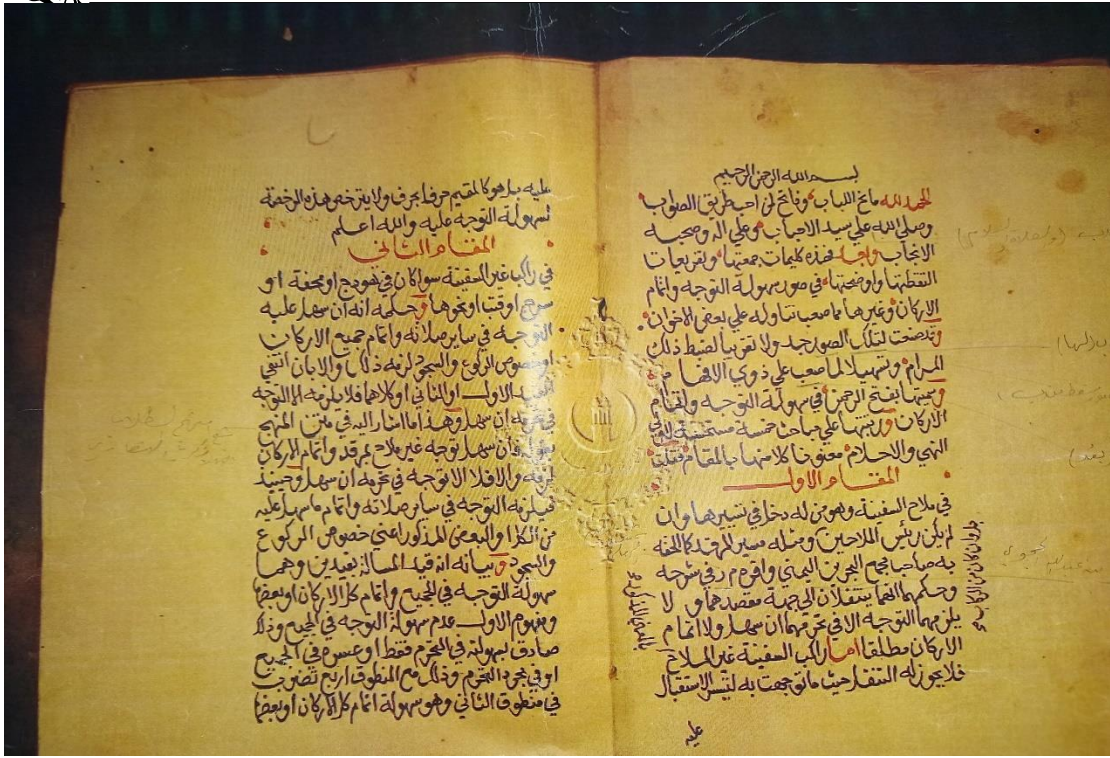 بسم الله الرحمن الرحيم
الحمد لله مانح اللباب وفاتح لمن احب طريق الصواب
وصلى الله علي سيد الاحباب وعلي اله وصحبه
الانجاب وبعد فهذه كليمات جمعتها وتفريعات
التقطتها واوضحتها في صور سهولة التوجه واتمام
الاركان وغيرها مما صعب تناوله علي بعض الاخوان
وقد صنعت لتلك الصور جدولا تقريبا لضبط ذلك
المرام وتسهيلا لما صعب علي ذوي الافهام
وسميتها بفتح الرحمن في سهولة التوجه واتمام
الاركان ورتبتها علي مباحث خمسة مستحسنة
النهي والاحلام معنونا كلا منها بالمقام فقلت
المقام الاول
في ملاح السفينة وهو من له دخل في تسيرها وان
لم يكن رئيس الملاحين ومثله مسير المرقد كما الحقه
به صاحب مجمع البحرين اليمني واقره م ر في شرحه
وحكمهما انهما يتنفلان الي جهة مقصدهما ولا
يلزمهما التوجه الا في تحرمهما ان سهل ولا اتمام
الاركان مطلقا اما راكب السفينة غير الملاح
فلا يجوز له التنفل حيث ما توجهت به لتيسر الاستقبال
عليه
عليه بل هو كالمقيم حرفا بحرف ولا يترخص هذه الرخصة
لسهولة التوجه عليه والله اعلم
المقام الثاني
في راكب غير السفينة سواكان في هودج او محفة او
سرج او قتب او نحوها وحكمه انه ان سهل عليه
التوجه في ساير صلاته واتمام جميع الاركان
او خصوص الركوع والسجود لزمه ذلك والا بان انتفي
القيد الاول او الثاني او كلاهما فلا يلزمه الا التوجه
في تحرمه ان سهل وهذا ما اشار اليه في متن المنهج
بقوله فان سهل توجه غير ملاح بمرقد واتمام الاركان
لزمه والا فلا الا توجه في تحرمه ان سهل وحينيذ
فيلزمه التوجه في ساير صلاته واتمام ما سهل عليه
من الكل او البعض المذكور اعني خصوص الركوع
والسجود وبيانه انه قيد المسالة بقيدين وهما
سهولة التوجه في الجميع واتمام كل الاركان او بعضها
ومفهوم الاول عدم سهولة التوجه في الجميع وذلك
صادق بسهولته في التحرم فقط او عسره في الجميع
او في مجرد التحرم وذلك مع المنطوق اربع تضرب
في منطوق الثاني وهو سهولة اتمام كل الاركان او بعضها